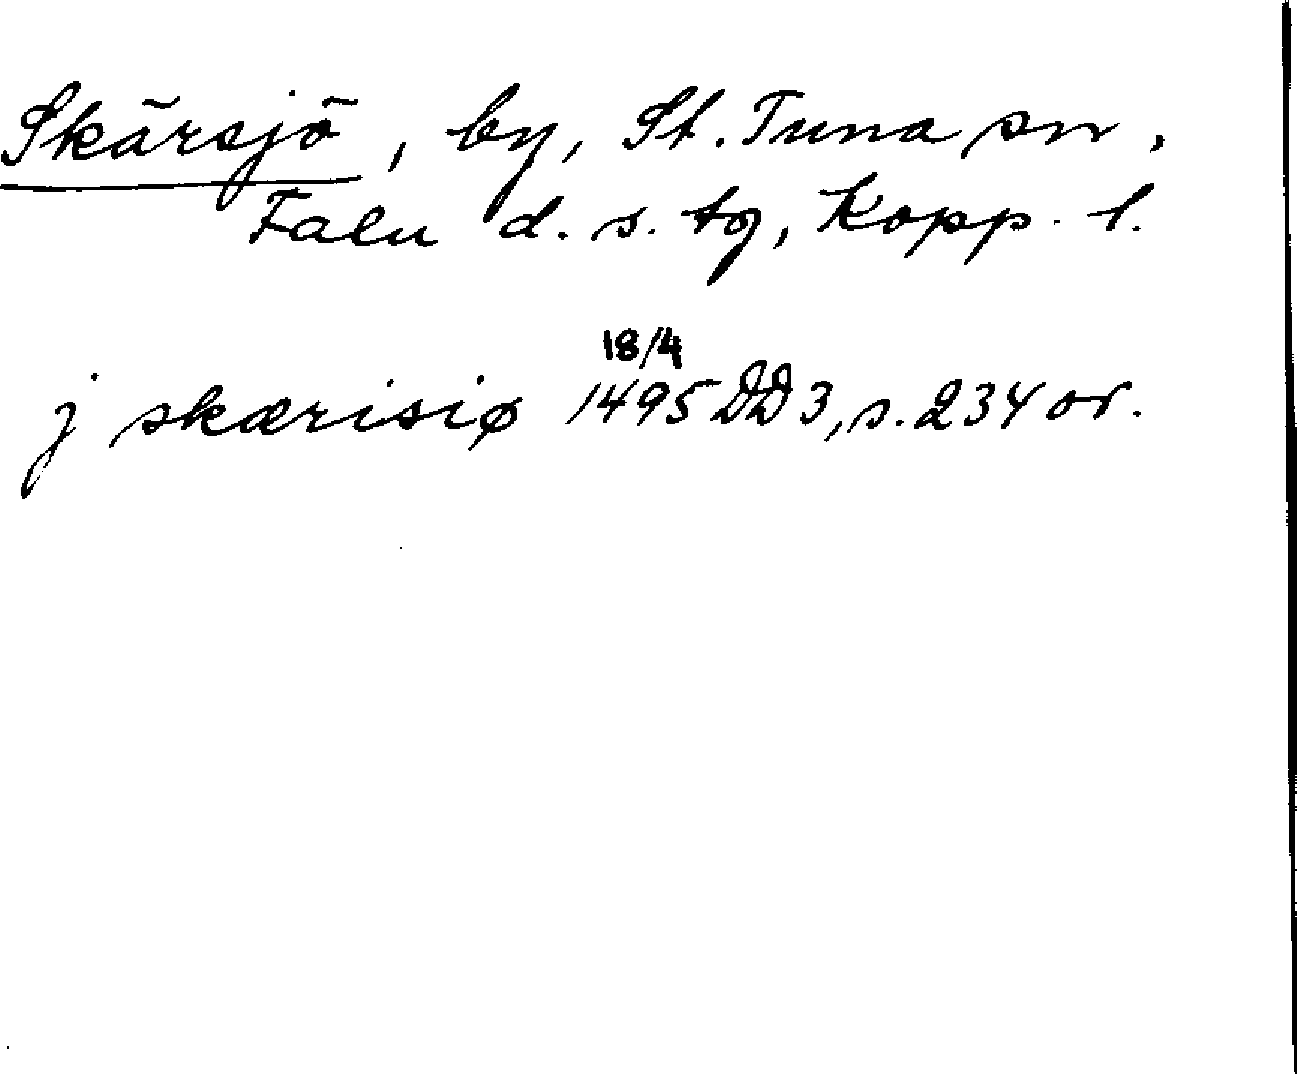 Skärsjö, by, St. Tuna sn.
Falu d. s. tg, Kopp. l.
18/4
j skærisiø 1495 DD 3, s. 234 or.